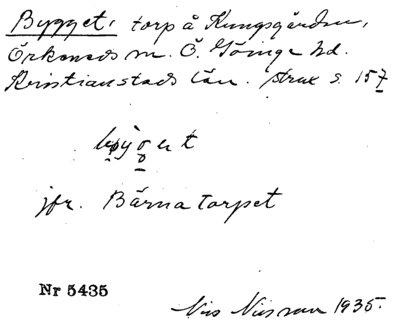 Bygget, torp å Kungsgården,
Örkeneds sn. Ö. Göinge hd.
Kristianstads län. strax s. 157
jfr. Bärnatorpet
Nr 5435
Nils Nilsson 1935.